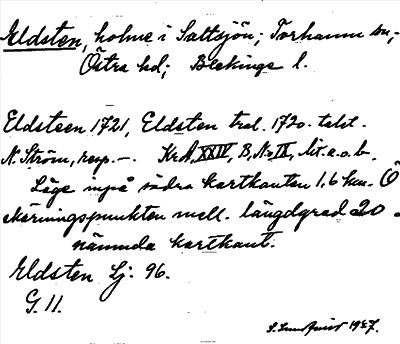 Eldsten, holme i Saltsjön; Torhamn sn;
Östra hd; Blekinge l.
Eldsteen 1721, Eldsten tral. 1720-talet.
N. Ström, resp. –. KrA, XXIV, B, No IX, Lit. a. o. b.
Läge inpå södra kartkanten 1,6 km. Ö
skärningspunkten mell. längdgrad 20 o
nämnda kartkant.
Eldsten Lj. 96.
G. 11.
S. Lundquist 1927.